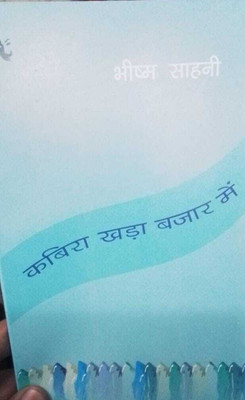 भीष्म साहनी
कबिरा खड़ा बजार में